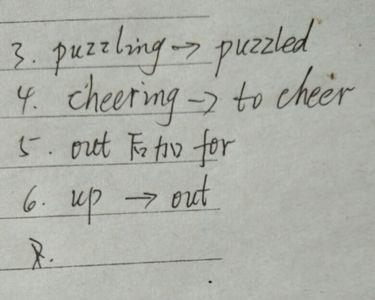 3. puzzling → puzzled
4. cheering → to cheer
5. out 后加 for
6. up → out
8.